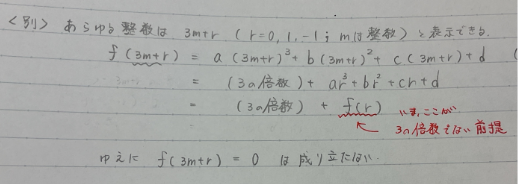 <別> あらゆる整数は 3m+r (r=0,1,-1; mは整数) と表示できる.
f(3m+r) = a(3m+r)³+b(3m+r)²+c(3m+r)+d
= (3の倍数) + ar³+br²+cr+d
= (3の倍数) + f(r) いま、ここが
3の倍数でない前提
ゆえに f(3m+r)=0 は成り立たない.